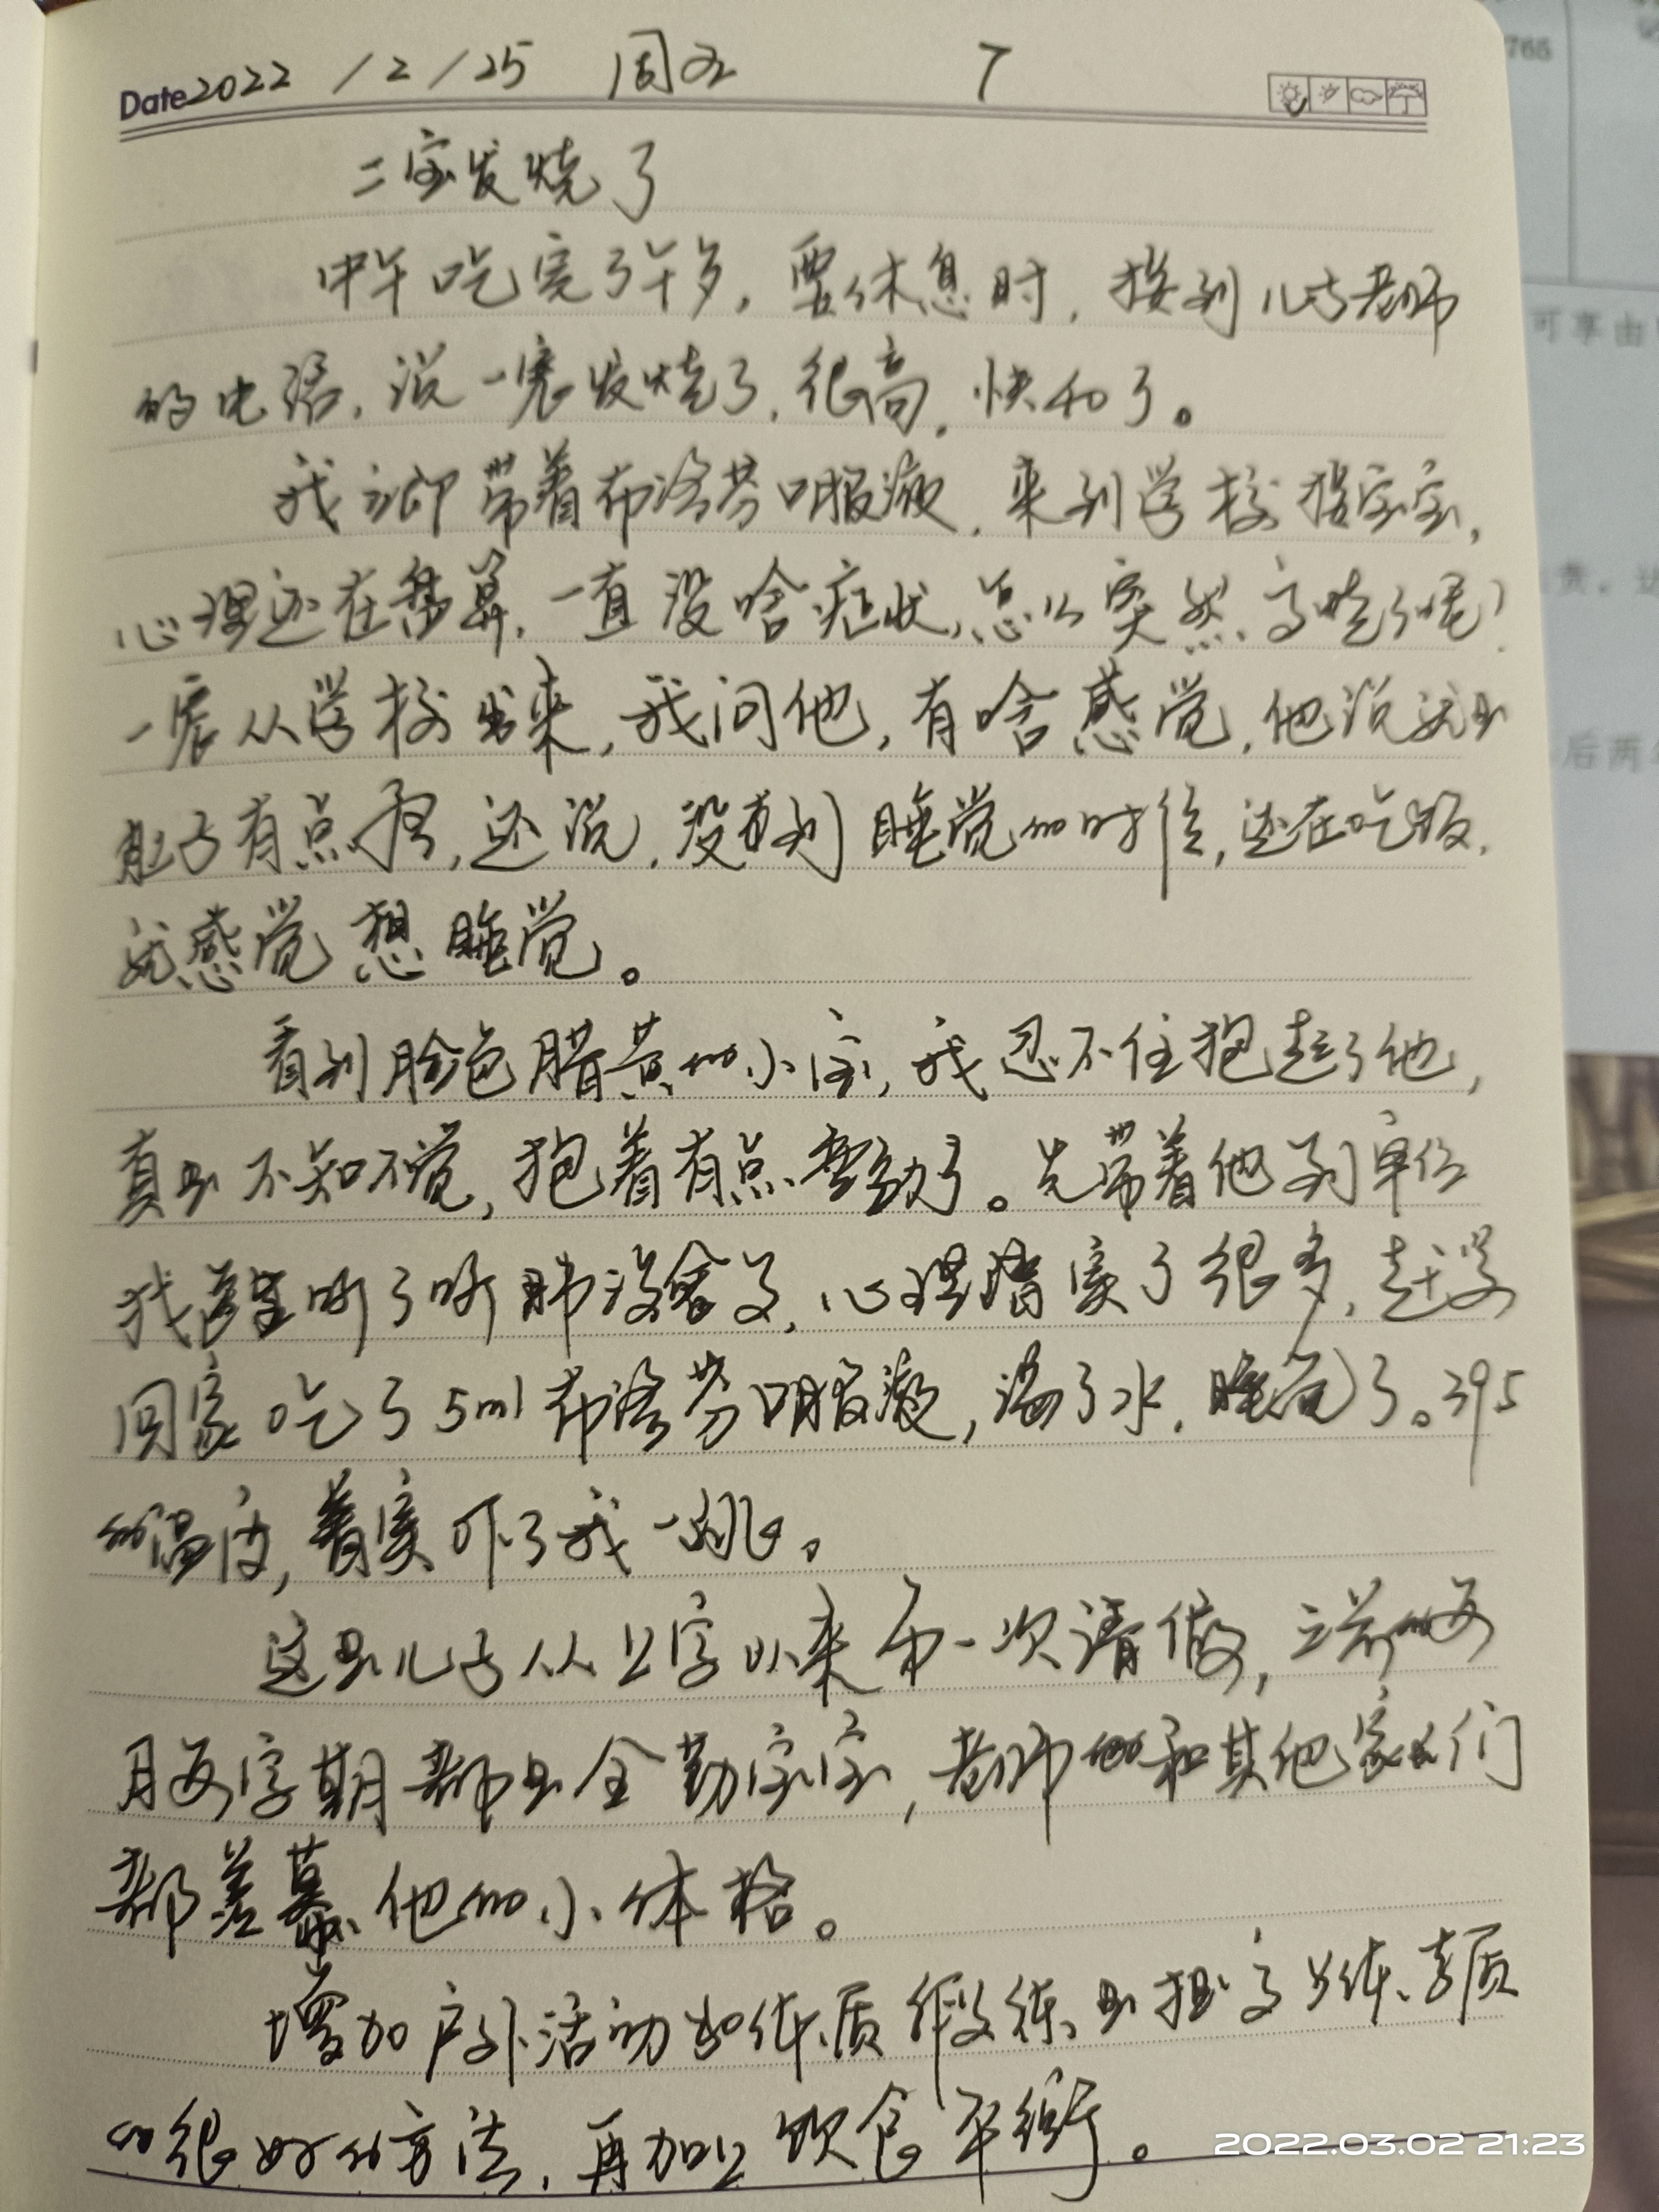 Date 2022/2/25 周五 7
二宝发烧了
中午吃完了午多,要休息时,接到儿子老师
的电话,说一宸发烧了,很高,快40了。
我立即带着布洛芬口服液,来到学校接宝宝,
心理还在盘算,一直没啥症状,怎么突然高烧了呢?
一宸从学校出来,我问他,有啥感觉,他说就是
肚子有点疼,还说,没有到睡觉的时候,还在吃饭,
就感觉想睡觉。
看到脸色腊黄的小宝,我忍不住抱起了他,
真是不知不觉,抱着有点费劲了。先带着他到单位
找 听了听肺没啥事,心理踏实了很多,赶紧
回家吃了5ml布洛芬口服液,喝了水,睡觉了。395
的温度,着实吓了我一跳。
这是儿子从上学以来第一次请假,之前的每
月每学期都是全勤宝宝,老师 和其他家长们
都羡慕他的小体格。
增加户外活动和体质锻练是提高 体素质
的很好的方法,再加上饮食平衡。
2022.03.02 21:23
可享由
后两
765